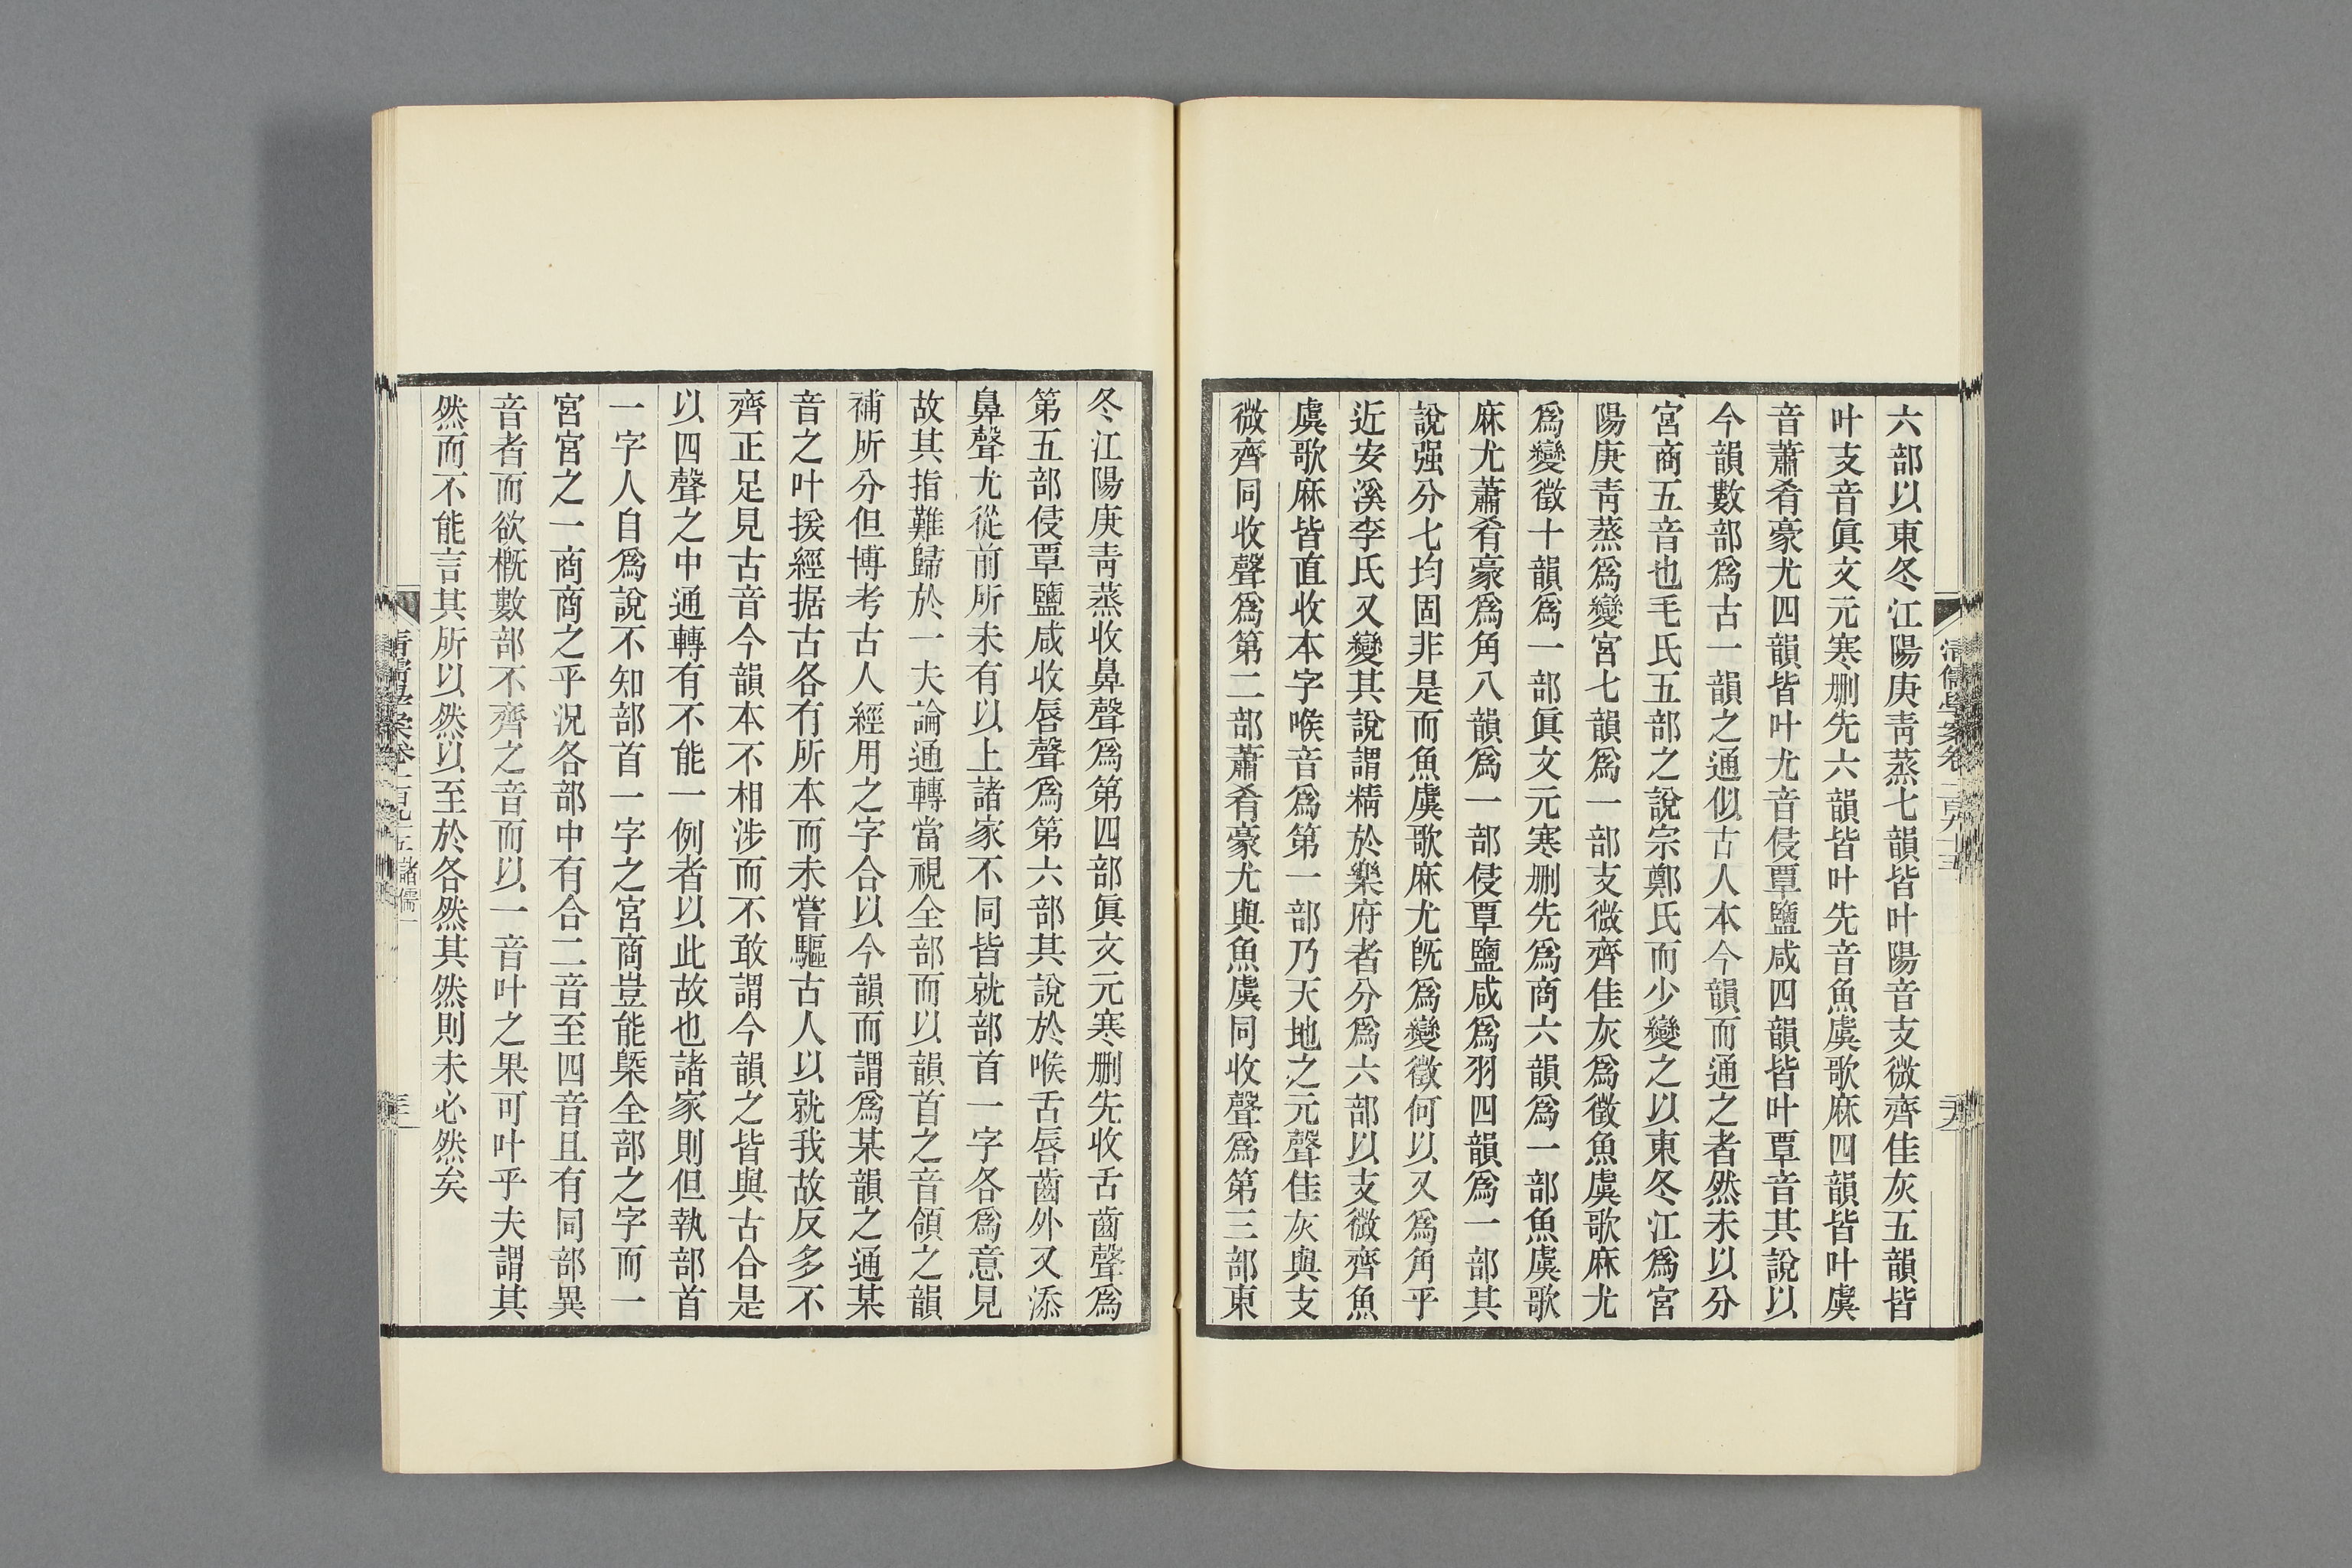 六部以東冬江陽庚靑蒸七韻皆叶陽音支微齊佳灰五韻皆
叶支音眞文元寒刪先六韻皆叶先音魚虞歌麻四韻皆叶虞
音蕭肴豪尤四韻皆叶尤音侵覃鹽咸四韻皆叶覃音其說以
今韻數部爲古一韻之通似古人本今韻而通之者然未以分
宮商五音也毛氏五部之說宗鄭氏而少變之以東冬江爲宮
陽庚靑蒸爲變宮七韻爲一部支微齊佳灰爲徵魚虞歌麻尤
爲變徵十韻爲一部眞文元寒刪先爲商六韻爲一部魚虞歌
麻尤蕭肴豪爲角八韻爲一部侵覃鹽咸爲羽四韻爲一部其
說强分七均固非是而魚虞歌麻尤旣爲變徵何以又爲角乎
近安溪李氏又變其說謂精於樂府者分爲六部以支微齊魚
虞歌麻皆直收本字喉音爲第一部乃天地之元聲佳灰與支
微齊同收聲爲第二部蕭肴豪尤與魚虞同收聲爲第三部東
冬江陽庚靑蒸收鼻聲爲第四部眞文元寒刪先收舌齒聲爲
第五部侵覃鹽咸收唇聲爲第六部其說於喉舌唇齒外又添
鼻聲尤從前所未有以上諸家不同皆就部首一字各爲意見
故其指難歸於一夫論通轉當視全部而以韻首之音領之韻
補所分但博考古人經用之字合以今韻而謂爲某韻之通某
音之叶援經据古各有所本而未嘗驅古人以就我故反多不
齊正足見古音今韻本不相涉而不敢謂今韻之皆與古合是
以四聲之中通轉有不能一例者以此故也諸家則但執部首
一字人自爲說不知部首一字之宮商豈能槩全部之字而一
宮宮之一商商之乎況各部中有合二音至四音且有同部異
音者而欲槪數部不齊之音而以一音叶之果可叶乎夫謂其
然而不能言其所以然以至於各然其然則未必然矣